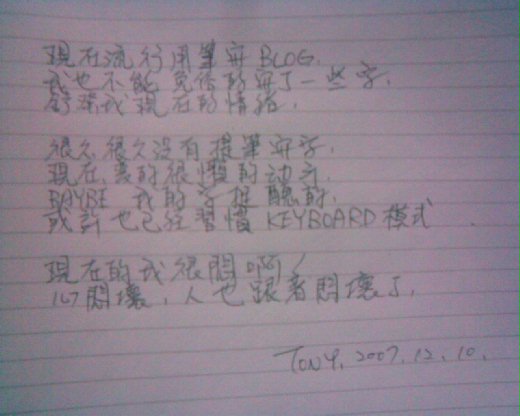 現在流行用筆寫 BLOG.
我也不能免俗的寫了一些字.
舒深我現在的情緒.
很久很久沒有提筆寫字.
現在,真的很懶的动手.
MAYBE 我的字挺醜的.
或許也已經習慣 KEYBOARD 模式
現在的我很悶啊!
心悶壞,人也跟着悶壞了.
TONY. 2007.12.10.